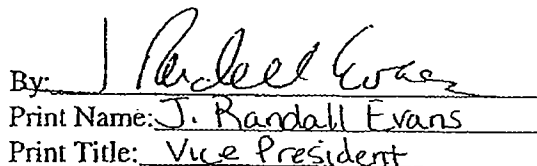 By: J Randall Evans
Print Name: J. Randall Evans
Print Title: Vice President